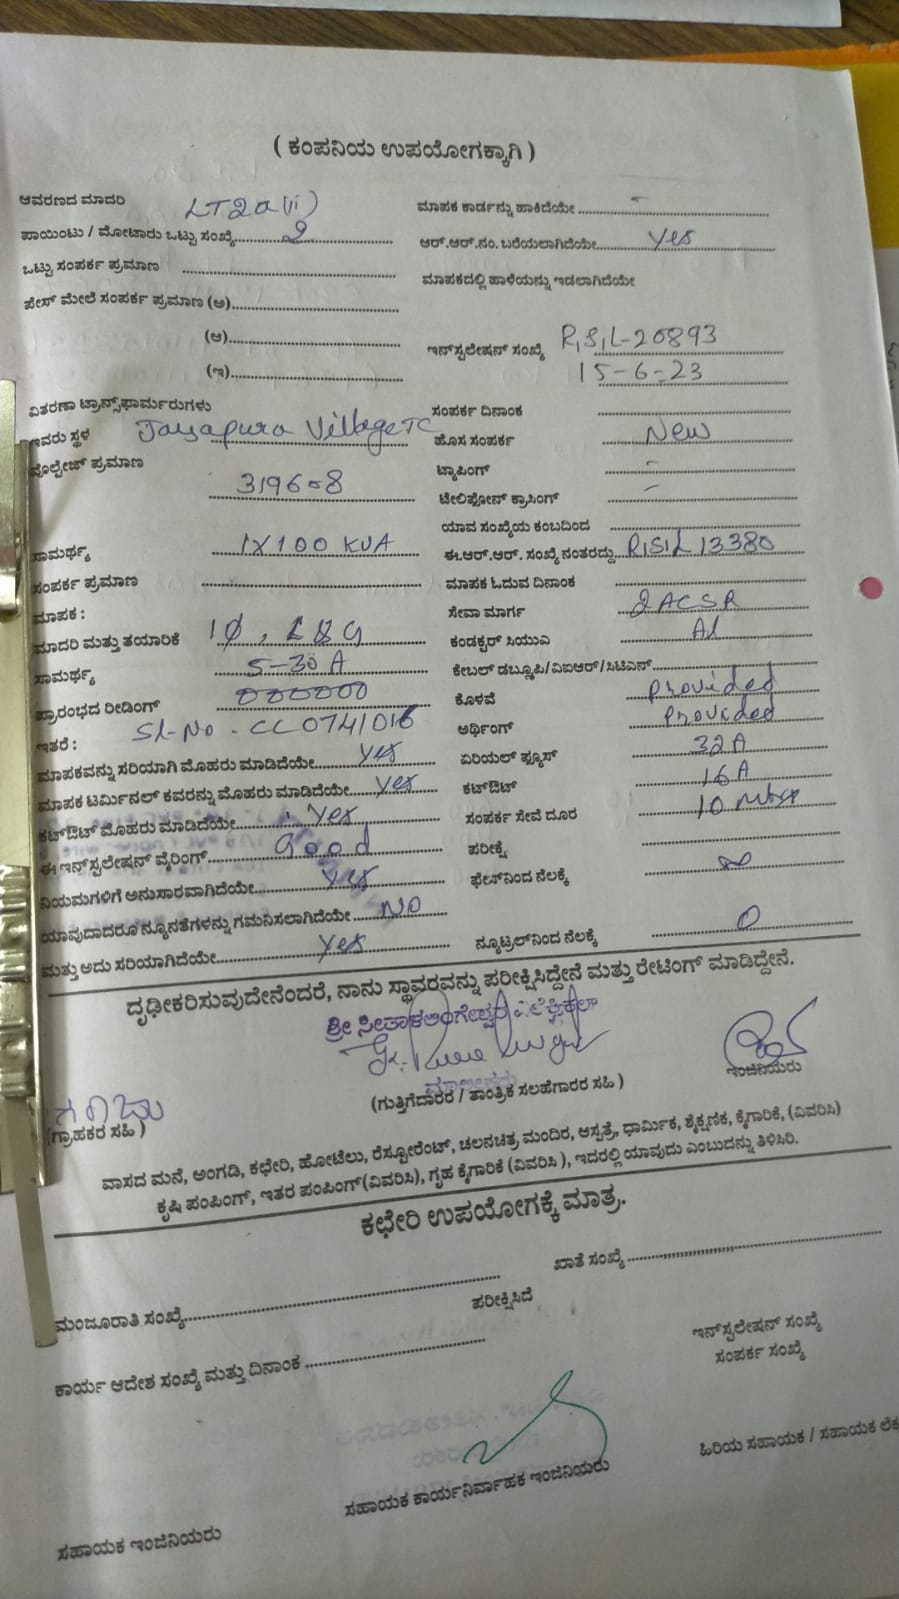 ( ಕಂಪನಿಯ ಉಪಯೋಗಕ್ಕಾಗಿ )
ಆವರಣದ ಮಾದರಿ LT2a(ii)
ಪಾಯಿಂಟು / ಮೋಟಾರು ಒಟ್ಟು ಸಂಖ್ಯೆ 2
ಒಟ್ಟು ಸಂಪರ್ಕ ಪ್ರಮಾಣ
ಪೇಸ್ ಮೇಲೆ ಸಂಪರ್ಕ ಪ್ರಮಾಣ (ಅ)
(ಆ)
(ಇ)
ವಿತರಣಾ ಟ್ರಾನ್ಸ್‌ಫಾರ್ಮರುಗಳು
ಇವರು ಸ್ಥಳ Jayapura Village TC
ವೊಲ್ಟೇಜ್ ಪ್ರಮಾಣ
ಸಾಮರ್ಥ್ಯ 1X100 KVA
ಸಂಪರ್ಕ ಪ್ರಮಾಣ
ಮಾಪಕ :
ಮಾದರಿ ಮತ್ತು ತಯಾರಿಕೆ 1Ø, L&G
ಸಾಮರ್ಥ್ಯ 5-30A
ಪ್ರಾರಂಭದ ರೀಡಿಂಗ್ 000000
ಇತರೆ : Sl-No - CC0741016
ಮಾಪಕವನ್ನು ಸರಿಯಾಗಿ ಮೊಹರು ಮಾಡಿದೆಯೇ Yes
ಮಾಪಕ ಟರ್ಮಿನಲ್ ಕವರನ್ನು ಮೊಹರು ಮಾಡಿದೆಯೇ Yes
ಕಟ್‌ಔಟ್ ಮೊಹರು ಮಾಡಿದೆಯೇ Yes
ಈ ಇನ್‌ಸ್ಟಲೇಷನ್ ವೈರಿಂಗ್ Good
ನಿಯಮಗಳಿಗೆ ಅನುಸಾರವಾಗಿದೆಯೇ Yes
ಯಾವುದಾದರೂ ನ್ಯೂನತೆಗಳನ್ನು ಗಮನಿಸಲಾಗಿದೆಯೇ NO
ಮತ್ತು ಅದು ಸರಿಯಾಗಿದೆಯೇ Yes
ಮಾಪಕ ಕಾರ್ಡನ್ನು ಹಾಕಿದೆಯೇ -
ಆರ್.ಆರ್.ನಂ. ಬರೆಯಲಾಗಿದೆಯೇ Yes
ಮಾಪಕದಲ್ಲಿ ಹಾಳೆಯನ್ನು ಇಡಲಾಗಿದೆಯೇ
ಇನ್‌ಸ್ಟಲೇಷನ್ ಸಂಖ್ಯೆ R,S,L-20893
15-6-23
ಸಂಪರ್ಕ ದಿನಾಂಕ
ಹೊಸ ಸಂಪರ್ಕ New
ಟ್ಯಾಪಿಂಗ್ -
ಟೇಲಿಫೋನ್ ಕ್ರಾಸಿಂಗ್ -
ಯಾವ ಸಂಖ್ಯೆಯ ಕಂಬದಿಂದ
ಈ.ಆರ್.ಆರ್. ಸಂಖ್ಯೆ ನಂತರದ್ದು R,S,L 13380
ಮಾಪಕ ಓದುವ ದಿನಾಂಕ
ಸೇವಾ ಮಾರ್ಗ 2ACSR
ಕಂಡಕ್ಟರ್ ಸಿಯುಎ Al
ಕೇಬಲ್ ಡಬ್ಲೂಪಿ/ವಿಐಆರ್/ಸಿಟಿಎಸ್
ಕೊಳವೆ Provided
ಅರ್ಥಿಂಗ್ Provided
ಏರಿಯಲ್ ಫ್ಯೂಸ್ 32A
ಕಟ್‌ಔಟ್ 16A
ಸಂಪರ್ಕ ಸೇವೆ ದೂರ 10
ಪರೀಕ್ಷೆ
ಫೇಸ್‌ನಿಂದ ನೆಲಕ್ಕೆ ∞
ನ್ಯೂಟ್ರಲ್‌ನಿಂದ ನೆಲಕ್ಕೆ 0
ದೃಢೀಕರಿಸುವುದೇನೆಂದರೆ, ನಾನು ಸ್ಥಾವರವನ್ನು ಪರೀಕ್ಷಿಸಿದ್ದೇನೆ ಮತ್ತು ರೇಟಿಂಗ್ ಮಾಡಿದ್ದೇನೆ.
ಮಾಲೀಕರು
(ಗ್ರಾಹಕರ ಸಹಿ )
(ಗುತ್ತಿಗೆದಾರರ / ತಾಂತ್ರಿಕ ಸಲಹೆಗಾರರ ಸಹಿ )
ಇಂಜಿನಿಯರು
ವಾಸದ ಮನೆ, ಅಂಗಡಿ, ಕಛೇರಿ, ಹೋಟೆಲು, ರೆಸ್ಟೋರೆಂಟ್, ಚಲನಚಿತ್ರ ಮಂದಿರ, ಆಸ್ಪತ್ರೆ, ಧಾರ್ಮಿಕ, ಶೈಕ್ಷಣಿಕ, ಕೈಗಾರಿಕೆ, (ವಿವರಿಸಿ)
ಕೃಷಿ ಪಂಪಿಂಗ್, ಇತರ ಪಂಪಿಂಗ್(ವಿವರಿಸಿ), ಗೃಹ ಕೈಗಾರಿಕೆ (ವಿವರಿಸಿ ), ಇದರಲ್ಲಿ ಯಾವುದು ಎಂಬುದನ್ನು ತಿಳಿಸಿರಿ.
ಕಛೇರಿ ಉಪಯೋಗಕ್ಕೆ ಮಾತ್ರ.
ಮಂಜೂರಾತಿ ಸಂಖ್ಯೆ
ಖಾತೆ ಸಂಖ್ಯೆ
ಪರೀಕ್ಷಿಸಿದೆ
ಕಾರ್ಯ ಆದೇಶ ಸಂಖ್ಯೆ ಮತ್ತು ದಿನಾಂಕ
ಇನ್‌ಸ್ಟಲೇಷನ್ ಸಂಖ್ಯೆ
ಸಂಪರ್ಕ ಸಂಖ್ಯೆ
ಸಹಾಯಕ ಇಂಜಿನಿಯರು
ಸಹಾಯಕ ಕಾರ್ಯನಿರ್ವಾಹಕ ಇಂಜಿನಿಯರು
ಹಿರಿಯ ಸಹಾಯಕ / ಸಹಾಯಕ